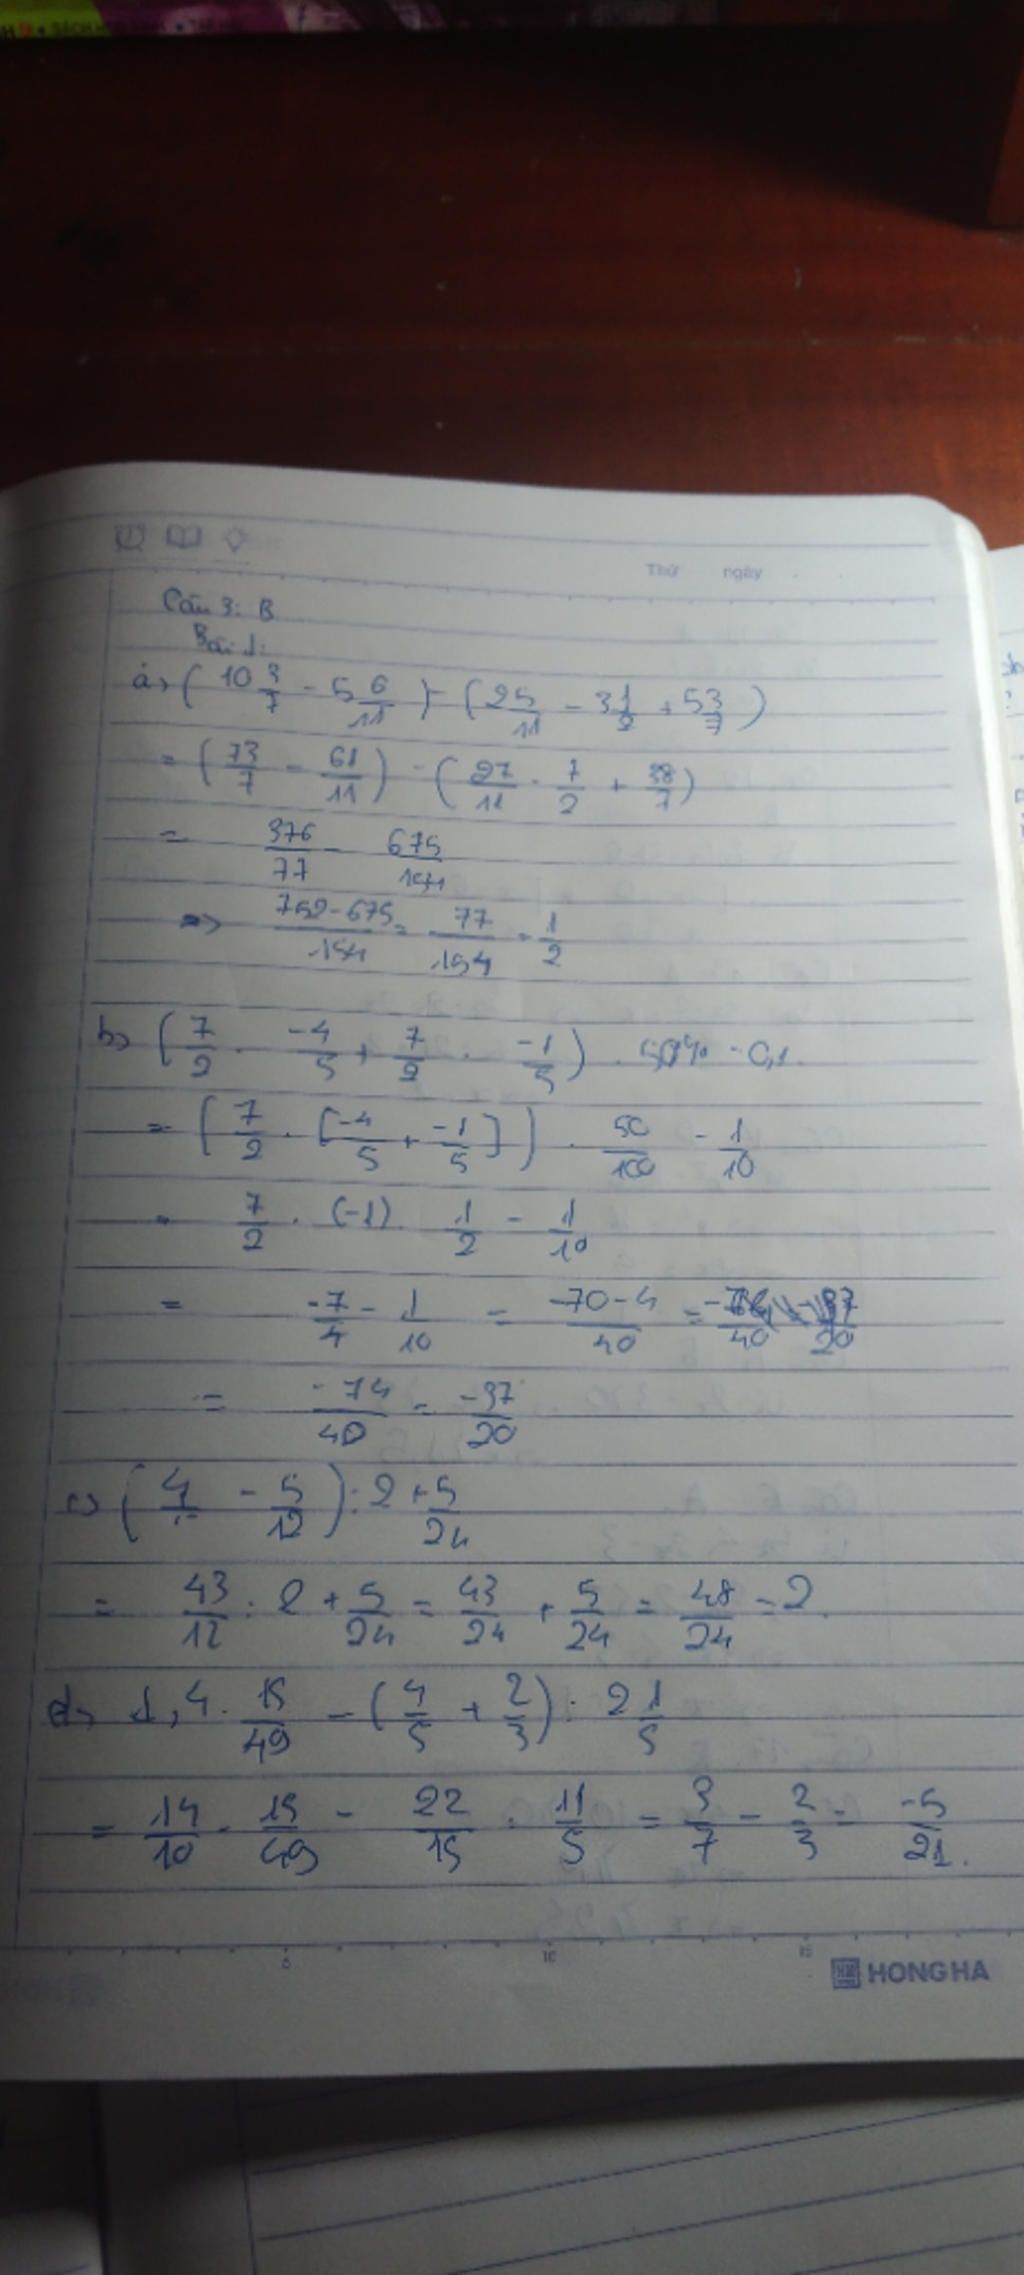 Thứ ngày
Câu 3: B
Bài 1:
a) ( 10 3/7 - 5 6/11 ) - ( 2 5/11 - 3 1/2 + 5 3/7 )
= ( 73/7 - 61/11 ) - ( 27/11 - 7/2 + 38/7 )
= 376/77 - 675/154
=> 752-675/154 = 77/154 = 1/2
b) ( 7/2 . -4/5 + 7/2 . -1/5 ) . 50% - 0,1.
= ( 7/2 . [ -4/5 + -1/5 ] ) . 50/100 - 1/10
= 7/2 . (-1) . 1/2 - 1/10
= -7/4 - 1/10 = -70-4/40 =
= -74/40 = -37/20
c) ( 4 - 5/12 ) : 2 + 5/24
= 43/12 : 2 + 5/24 = 43/24 + 5/24 = 48/24 = 2.
d) 1,4 . 15/49 - ( 4/5 + 2/3 ) : 2 1/5
= 14/10 . 15/49 - 22/15 : 11/5 = 3/7 - 2/3 = -5/21.
5 10 15
HONG HA